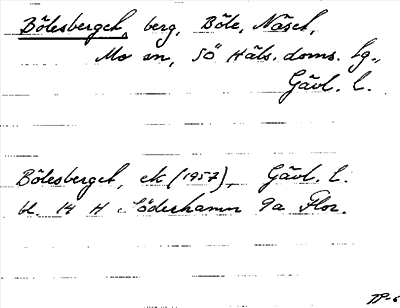 Bölesberget, berg, Böle, Näset,
Mo sn, SÖ Häls. doms. lg.,
Gävl. l.
Bölesberget, ek (1957), Gävl. l.
bl. 14 H Söderhamn 9a Flor.